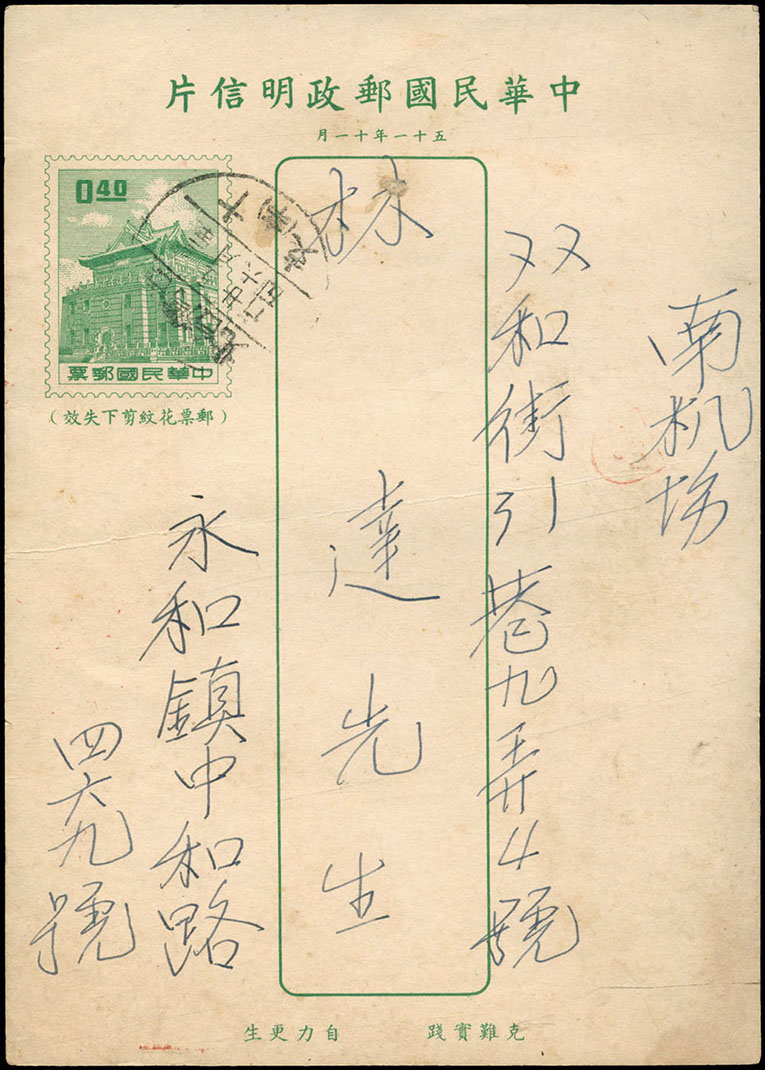 中華民國郵政明信片
五十一年十一月
南机场
双和街引巷九弄4號
林達先生
永和鎮中和路
四六九號
0.40
中華民國郵票
(郵票花紋剪下失效)
克難實踐 自力更生